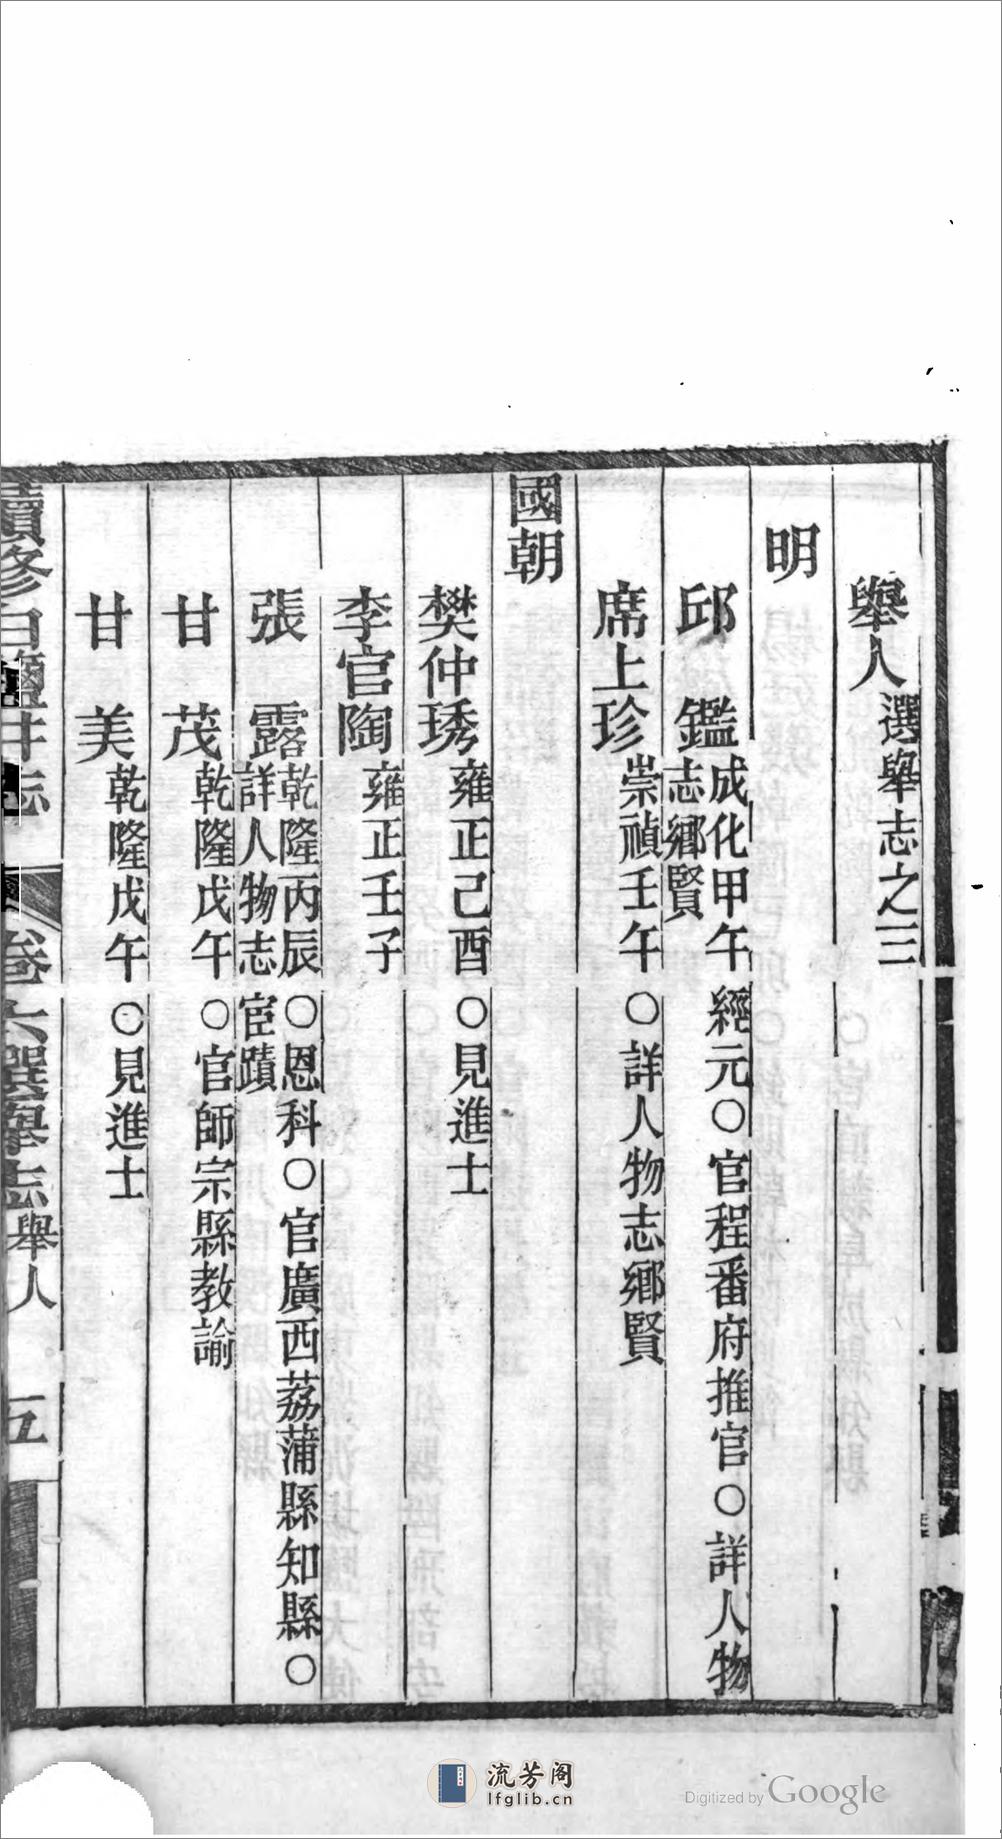 舉人選舉志之三
明
邱鑑成化甲午經元○官程番府推官○詳人物志鄉賢
席上珍崇禎壬午○詳人物志鄉賢
國朝
樊仲琇雍正己酉○見進士
李官陶雍正壬子
張露乾隆丙辰○恩科○官廣西荔蒲縣知縣○詳人物志宦蹟
甘茂乾隆戊午○官師宗縣教諭
甘美乾隆戊午○見進士
續修白鹽井志 卷六選舉志舉人 五
流芳阁
lfglib.cn
Digitized by Google